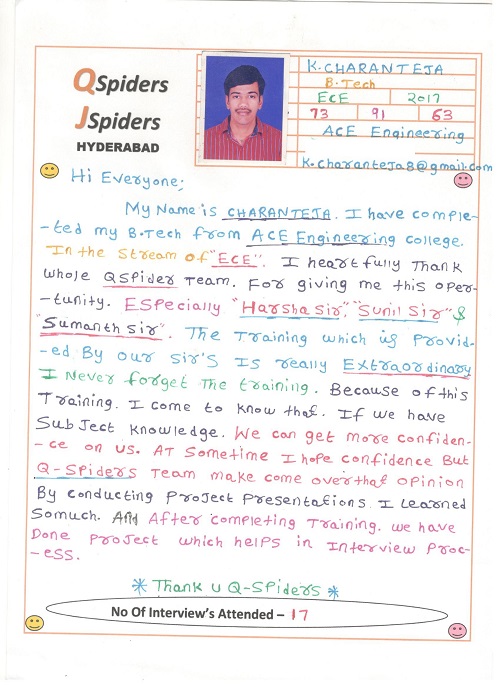 QSpiders
JSpiders
HYDERABAD
K.CHARANTEJA
B.Tech
ECE 2017
73 91 63
ACE Engineering
K.charanteja8@gmail.com
Hi Everyone;
My Name is CHARANTEJA. I have comple-
-ted my B.Tech from ACE Engineering college.
In the Stream of "ECE". I heartfully Thank
whole QSpider Team. For giving me this oper-
-tunity. ESpecially "Harsha Sir", "Sunil Sir" &
"Sumanth Sir". The Training which is Provid-
-ed By our Sir'S Is really Extraordinary
I Never forget The training. Because of this
Training. I come to know that. If we have
SubJect Knowledge. We can get more confiden-
-ce on us. AT Sometime I hope confidence But
Q-SPiderS Team make come overthat opinion
By conducting Project Presentations. I Learned
Somuch. And After completing Training. we have
Done Project which helps in Interview Proc-
-ess.
* Thank u Q-SPiders *
No Of Interview's Attended – 17